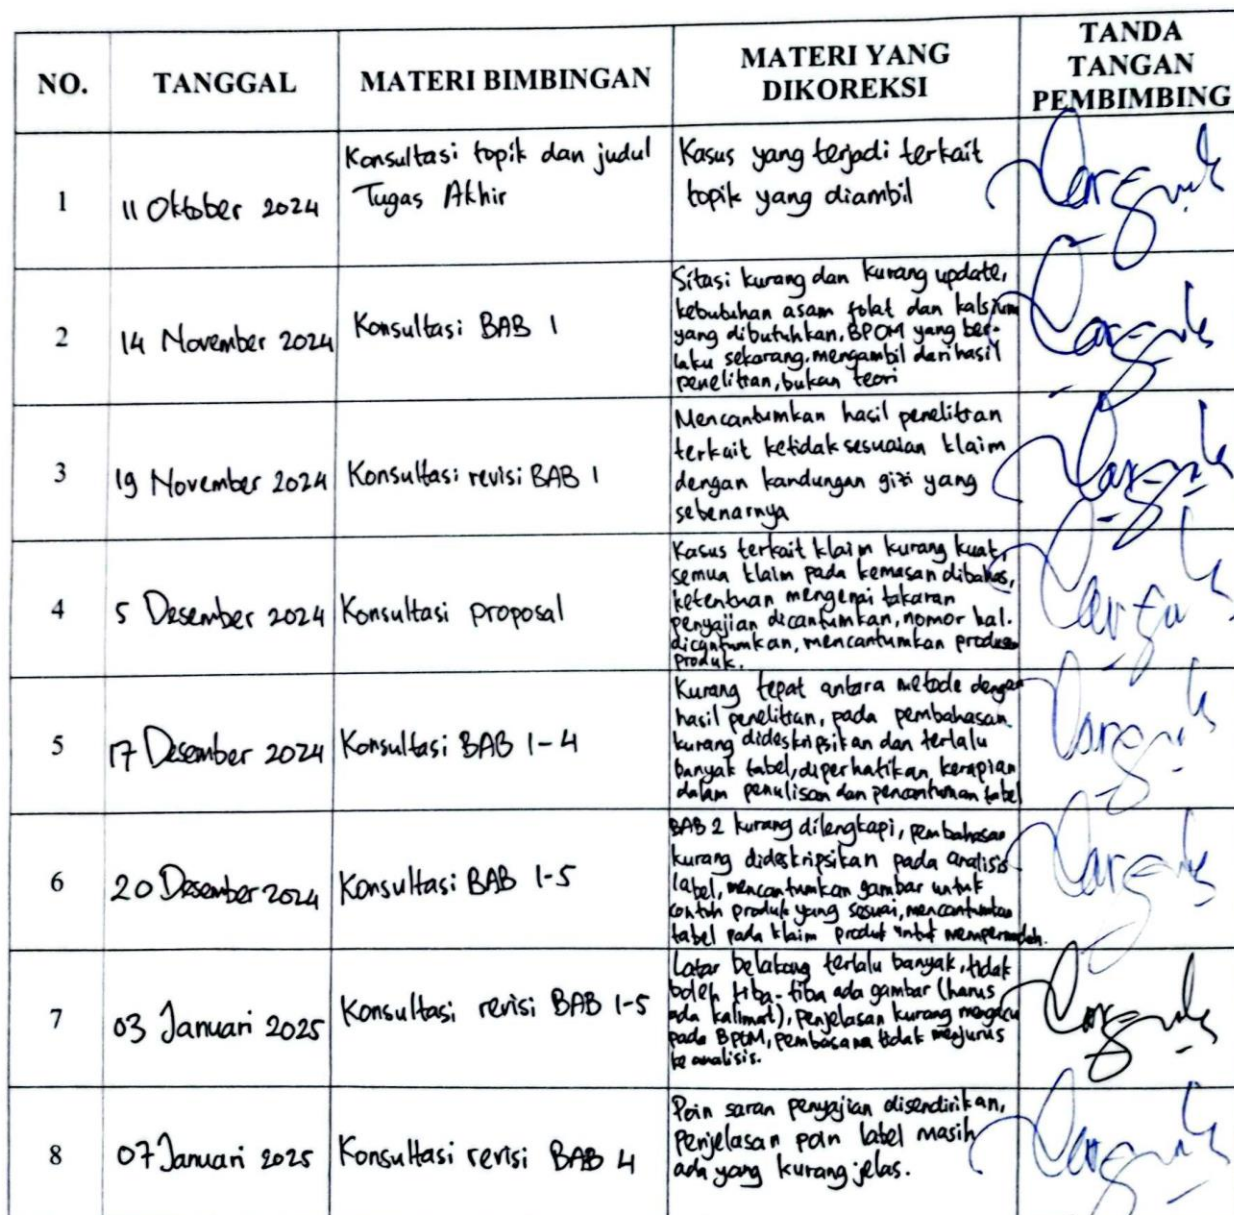 NO.
TANGGAL
MATERI BIMBINGAN
MATERI YANG
DIKOREKSI
TANDA
TANGAN
PEMBIMBING
1
11 Oktober 2024
Konsultasi topik dan judul
Tugas Akhir
Kasus yang terjadi terkait
topik yang diambil
2
14 November 2024
Konsultasi BAB 1
Sitasi kurang dan kurang update,
kebutuhan asam folat dan kalsium
yang dibutuhkan, BPOM yang ber-
laku sekarang, mengambil dari hasil
penelitian, bukan teori
3
19 November 2024
Konsultasi revisi BAB 1
Mencantumkan hasil penelitian
terkait ketidaksesuaian klaim
dengan kandungan gizi yang
sebenarnya
4
5 Desember 2024
Konsultasi proposal
Kasus terkait klaim kurang kuat,
semua klaim pada kemasan dibahas,
ketentuan mengenai takaran
penyajian dicantumkan, nomor hal.
dicantumkan, mencantumkan produsen
produk.
5
17 Desember 2024
Konsultasi BAB 1-4
Kurang tepat antara metode dengan
hasil penelitian, pada pembahasan
kurang dideskripsikan dan terlalu
banyak tabel, diperhatikan kerapian
dalam penulisan dan pencantuman tabel
6
20 Desember 2024
Konsultasi BAB 1-5
BAB 2 kurang dilengkapi, pembahasan
kurang dideskripsikan pada analisis
label, mencantumkan gambar untuk
contoh produk yang sesuai, mencantumkan
tabel pada klaim produk untuk mempermudah.
7
03 Januari 2025
Konsultasi revisi BAB 1-5
Latar belakang terlalu banyak, tidak
boleh tiba-tiba ada gambar (harus
ada kalimat), penjelasan kurang mengacu
pada BPOM, pembasana tidak menjurus
ke analisis.
8
07 Januari 2025
Konsultasi revisi BAB 4
Poin saran penyajian disendirikan,
Penjelasan poin label masih
ada yang kurang jelas.